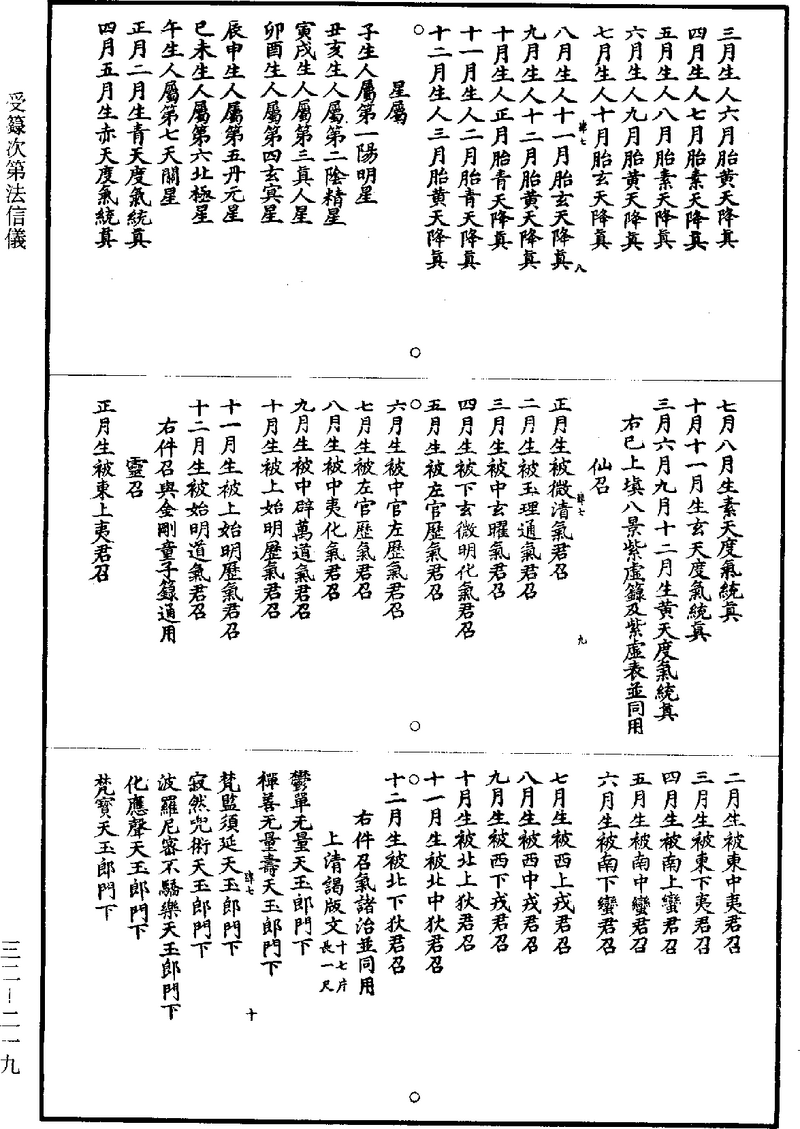 三月生人六月胎黃天降真
四月生人七月胎素天降真
五月生人八月胎素天降真
六月生人九月胎黃天降真
七月生人十月胎玄天降真
肆七 八
八月生人十一月胎玄天降真
九月生人十二月胎黃天降真
十月生人正月胎青天降真
十一月生人二月胎青天降真
十二月生人三月胎黃天降真
星屬
子生人屬第一陽明星
丑亥生人屬第二陰精星
寅戌生人屬第三真人星
卯酉生人屬第四玄冥星
辰申生人屬第五丹元星
巳未生人屬第六北極星
午生人屬第七天關星
正月二月生青天度氣統真
四月五月生赤天度氣統真
七月八月生素天度氣統真
十月十一月生玄天度氣統真
三月六月九月十二月生黃天度氣統真
右已上填八景紫虛籙及紫虛表並同用
仙召
肆七 九
正月生被微清氣君召
二月生被玉理通氣君召
三月生被中玄曜氣君召
四月生被下玄微明化氣君召
五月生被左官歷氣君召
六月生被中官左歷氣君召
七月生被左官歷氣君召
八月生被中夷化氣君召
九月生被中辟萬道氣君召
十月生被上始明歷氣君召
十一月生被上始明歷氣君召
十二月生被始明道氣君召
右件召與金剛童子籙通用
靈召
正月生被東上夷君召
二月生被東中夷君召
三月生被東下夷君召
四月生被南上蠻君召
五月生被南中蠻君召
六月生被南下蠻君召
七月生被西上戎君召
八月生被西中戎君召
九月生被西下戎君召
十月生被北上狄君召
十一月生被北中狄君召
十二月生被北下狄君召
右件召氣諸治並同用
上清謁版文十七片長一尺
鬱單无量天玉郎門下
禪善无量壽天玉郎門下
肆七 十
梵監須延天玉郎門下
寂然兜術天玉郎門下
波羅尼密不驕樂天玉郎門下
化應聲天玉郎門下
梵寶天玉郎門下
受籙次第法信儀
三二—二一九